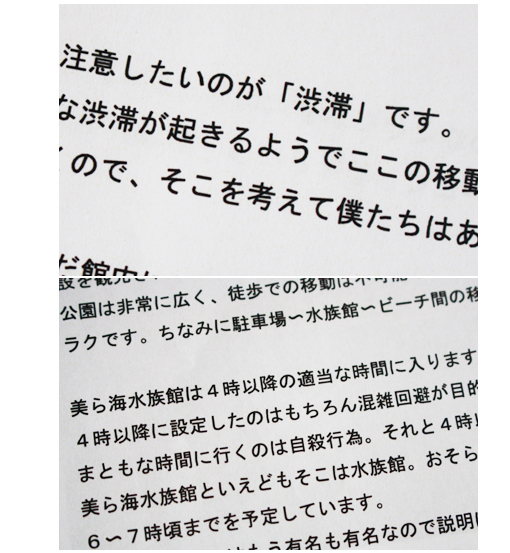 注意したいのが「渋滞」です。
な渋滞が起きるようでここの移動
ので、そこを考えて僕たちはあ
だ館内に
設を観光さ
公園は非常に広く、徒歩での移動は不可能
ラクです。ちなみに駐車場〜水族館〜ビーチ間の移
美ら海水族館は４時以降の適当な時間に入ります
４時以降に設定したのはもちろん混雑回避が目的
まともな時間に行くのは自殺行為。それと４時以
美ら海水族館といえどもそこは水族館。おそら
６〜７時頃までを予定しています。
はもう有名も有名なので説明